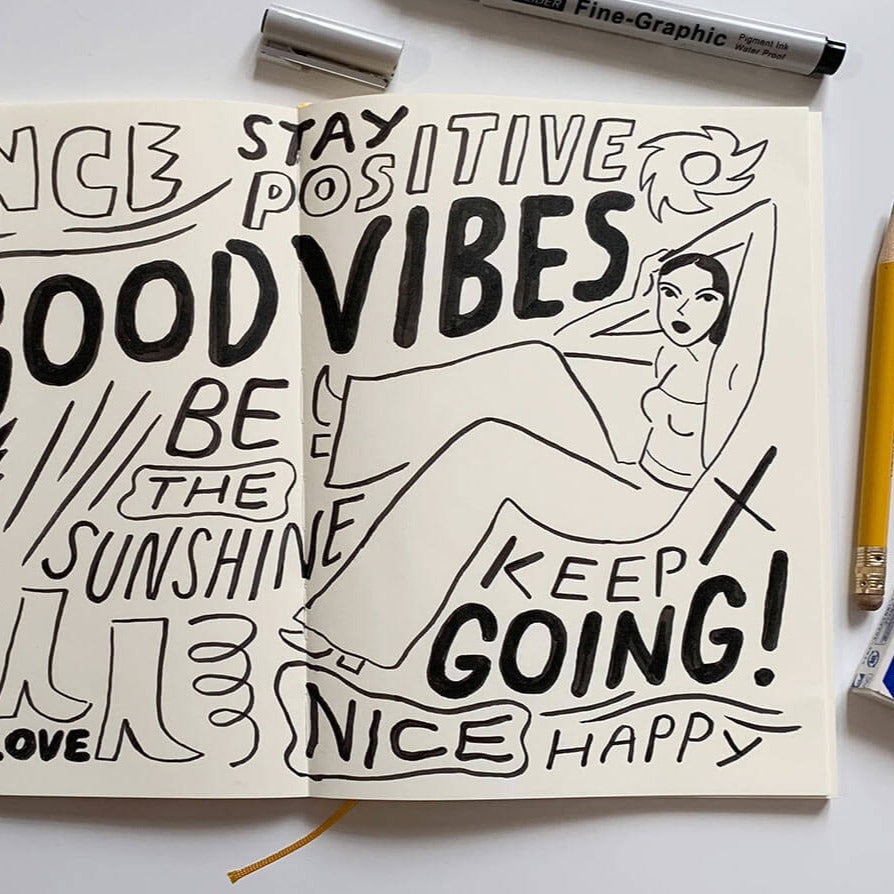 Fine-Graphic
Pigment Ink
Water Proof
NCE
STAY
POSITIVE
GOOD VIBES
BE
THE
SUNSHINE
KEEP
GOING!
LOVE
NICE
HAPPY